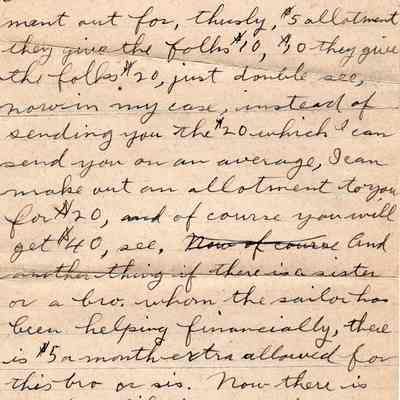 ment out for, thusly, $5 allotment
they give the folks $10, $10 they give
the folks $20, just double see,
now in my case, instead of
sending you the $20 which I can
send you on an average, I can
make out an allotment to you
for $20, and of course you will
get $40, see. Now of course And
another thing if there is a sister
or a bro. whom the sailor has
been helping financially, there
is $5 a month extra allowed for
this bro or sis. Now there is